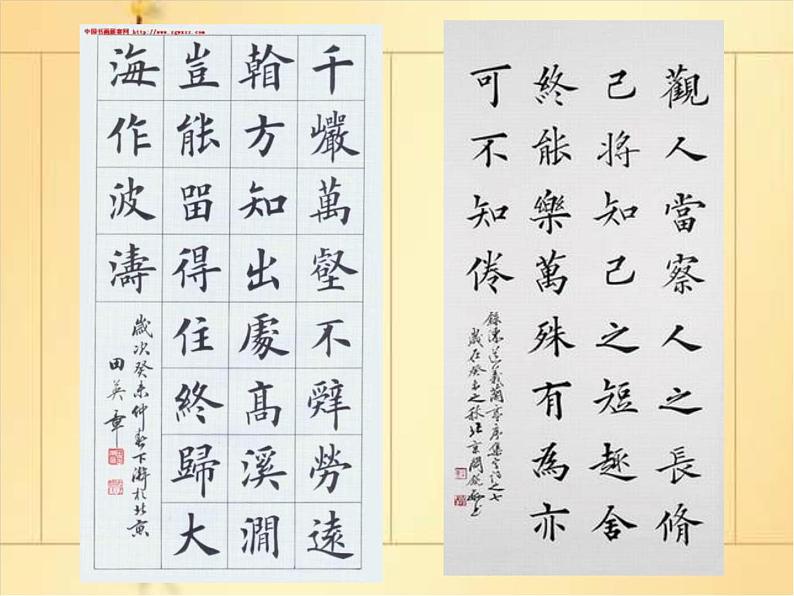 千巗萬壑不辤勞遠
看方知出處高溪澗
豈能畱得住終歸大
海作波濤
歲次癸未仲春下澣於北京
田英章
觀人當察人之長脩
己將知己之短趣舍
終能樂萬殊有為亦
可不知倦
蘭亭序集字詩之七
歲在癸未之秋北京閻銳敏書
中国书画联赛网 http://www.zgwxzz.com